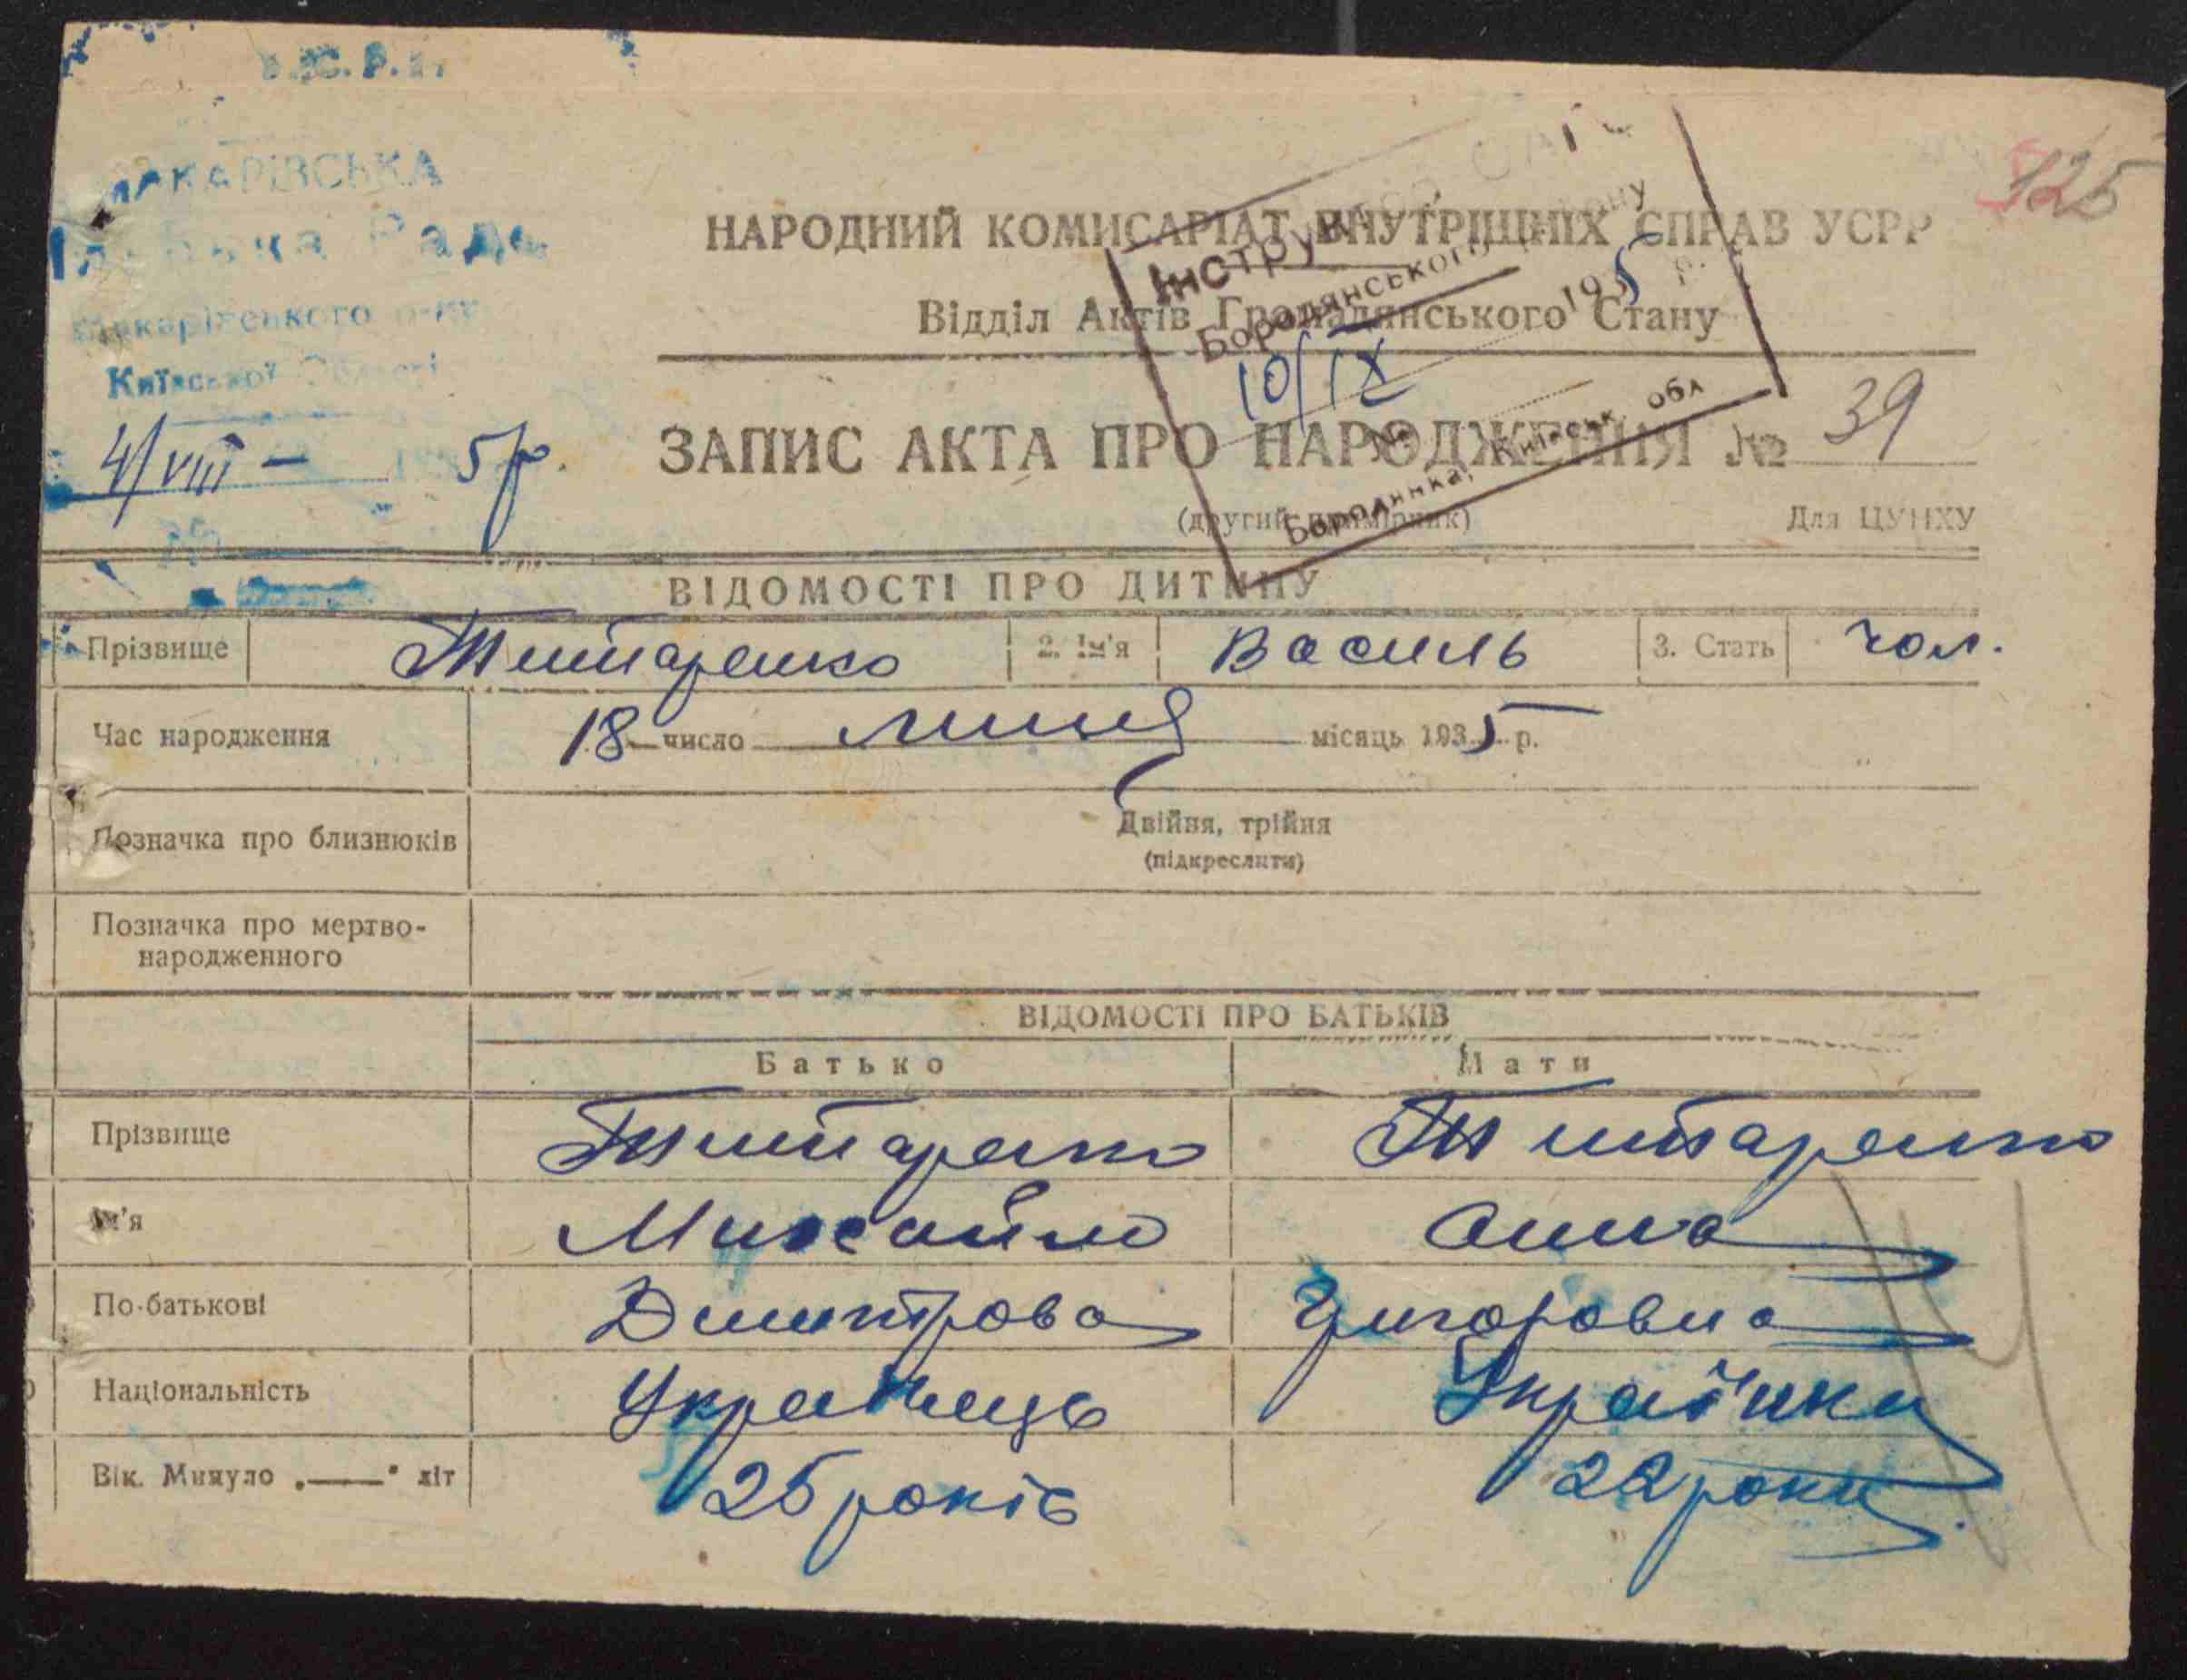 МАКАРІВСЬКА
Рада
Макарівського р-ну
Київської Області
4/VIII — 5 р.
125
НАРОДНИЙ КОМИСАРІАТ ВНУТРІШНІХ СПРАВ УСРР
Відділ Актів Громадянського Стану
Інструктор
Бородянського району
10/IX 1935 р.
№
Бородянка, Київськ. обл
ЗАПИС АКТА ПРО НАРОДЖЕННЯ № 39
(другий примірник) Для ЦУНХУ
ВІДОМОСТІ ПРО ДИТИНУ
Прізвище Титаренко 2. Ім'я Василь 3. Стать чол.
Час народження 18 число липня місяць 1935 р.
Позначка про близнюків Двійня, трійня
(підкреслити)
Позначка про мертво-
народженного
ВІДОМОСТІ ПРО БАТЬКІВ
Батько Мати
Прізвище Титаренко Титаренко
Ім'я Михайло Анна
По-батькові Дмитрова Григоровна
Національність Українець Українка
Вік. Минуло „——“ літ 25 років 22 роки